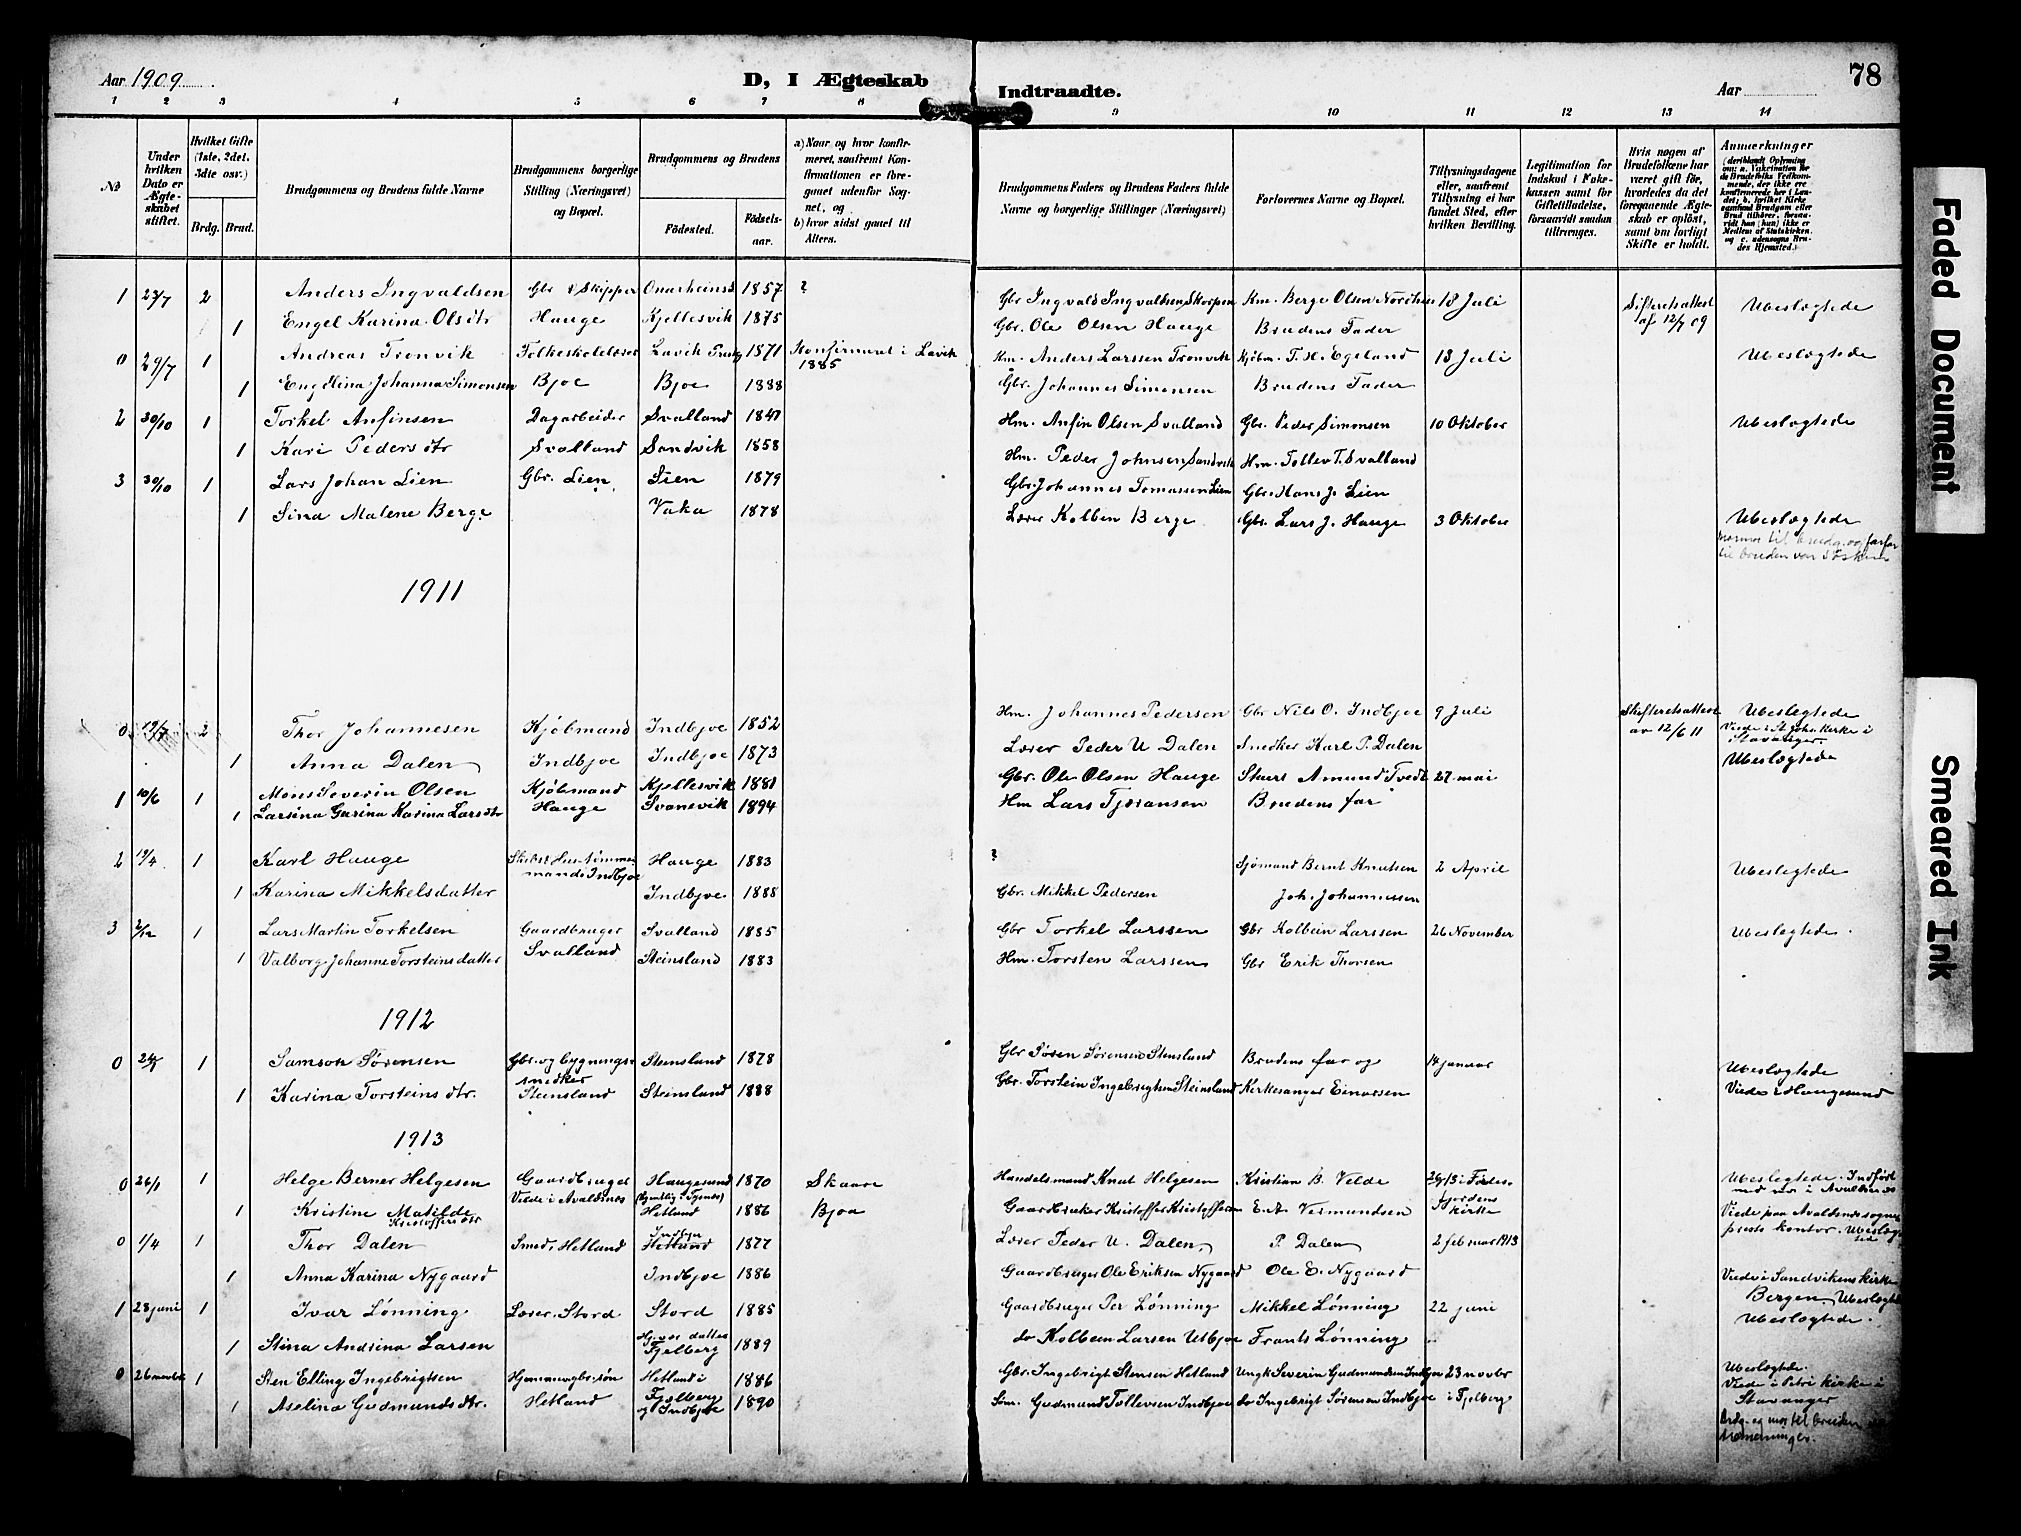 Aar 1909
D, I Ægteskab
Indtraadte.
Aar
78
1 2 3 4 5 6 7 8 9 10 11 12 13 14
№
Under hvilken Dato er Ægteskabet stiftet.
Hvilket Gifte (1ste, 2det, 3die osv.)
Brdg. Brud.
Brudgommens og Brudens fulde Navne
Brudgommens borgerlige Stilling (Næringsvei) og Bopæl.
Brudgommens og Brudens
Födested.
Födselsaar.
a) Naar og hvor konfirmeret, saafremt Konfirmationen er foregaaet udenfor Sognet, og
b) hvor sidst gaaet til Alters.
Brudgommens Faders og Brudens Faders fulde Navne og borgerlige Stillinger (Næringsvei)
Forlovernes Navne og Bopæl.
Tillysningsdagene eller, saafremt Tillysning ei har fundet Sted, efter hvilken Bevilling.
Legitimation for Indskud i Enkekassen samt for Giftetilladelse, forsaavidt saadan tiltrænges.
Hvis nogen af Brudefolkene har været gift før, hvorledes da det foregaaende Ægteskab er oplöst, samt om lovligt Skifte er holdt.
Anmerkninger
1 23/7 2 Anders Ingvaldsen Gbr & Skipper Onarheims 1857 ? Gbr Ingvald Ingvaldsen Skorpen Km. Berge Olsen 18 Juli Skifteretsattest af 12/7 09 Ubeslægtede
1 Engel Karina Olsdtr Hauge Kjellesvik 1875 Gbr. Ole Olsen Hauge Brudens Fader
0 29/7 1 Andreas Tronvik Folkeskolelærer Lavik 1871 Konfirmeret i Lavik 1885 Hm. Anders Larssen Tronvik Kjøbm. T. H. Egeland 18 Juli Ubeslægtede
1 Engelina Johanna Simonsen Bjoe Bjoe 1888 Gbr. Johannes Simonsen Brudens Fader
2 30/10 1 Torkel Anfinsen Dagarbeider Svalland 1847 Hm. Anfin Olsen Svalland Gbr. Peder Simonsen 10 Oktober Ubeslægtede
1 Kari Pedersdtr Svalland Sandvik 1858 Hm. Peder Johnsen Sandvik Hm. Tollev T. Svalland
3 30/10 1 Lars Johan Lien Gbr. Lien Lien 1879 Gbr. Johannes Tomassen Lien Gbr. Hans J. Lien
1 Sina Malene Berge Vaka 1878 Lærer Kolben Berge Gbr. Lars J. Hauge 3 Oktober Ubeslægtede
mormor til brudg. og farfar
til bruden var Søsken
1911
0 19/7 2 Thor Johannesen Kjøbmand Indbjoe 1852 Hm. Johannes Pedersen Gbr Nils O. Indbjoe 9 Juli Skifteretsattest av 12/6 11 Ubeslegtede
Viede i St. Joh. Kirke i Stavanger.
1 Anna Dalen Indbjoe Indbjoe 1873 Lærer Peder U Dalen Snedker Karl P. Dalen
1 10/6 1 Mons Severin Olsen Kjøbmand Kjellesvik 1881 Gbr. Ole Olsen Hauge Skurs Amund Tvedt 27. mai Ubeslegtede
1 Larsina Gurina Karina Larsdtr Hauge Svanevik 1894 Hm Lars Tjøransen Brudens far
2 19/4 1 Karl Hauge Indbjoe Hauge 1883 ? Sjømand Bernt Knutsen 2 April Ubeslegtede
1 Karina Mikkelsdatter Indbjoe 1888 Gbr. Mikkel Pedersen Joh. Johannessen
3 2/12 1 Lars Martin Torkelsen Gaardbruger Svalland 1885 Gbr Torkel Larssen Gbr Kolbein Larssen 26 November Ubeslegtede.
1 Valborg Johanne Torsteinsdatter Svalland Steinsland 1883 Hm. Torsten Larssen Gbr Erik Thorsen
1912
0 1 Samson Sørensen Gbr. og bygningssnedker Stensland 1878 Gbr Søren Sørensen Stensland Brudens far og 14 januar Ubeslegtede
1 Karina Torsteinsdtr. Steinsland Steinsland 1888 Gbr. Torstein Ingebrigtsen Steinsland Kirkesanger Einarsen Viede i Haugesund
1913
0 26/1 1 Helge Berner Helgesen Gaardbruger Haugesund 1870 Skaare Handelsmand Knut Helgesen Kristian B. Velde Ubeslegtede. Indført med no i Avaldsnes
1 Kristine Matilde Kristoffersdtr Velde i Avaldsnes (Egentlig: Tysnes) Hetland 1886 Bjoa Gaardbruker Kristoffer Kristoffersen E. A. Vermundsen fjordens kirke Viede paa Avaldsnes sogneprests kontor. Ubeslægtede
0 1/4 1 Thor Dalen Smed, Hetland Indbjo Hetland 1877 Lærer Peder U. Dalen P. Dalen 2 februar 1913
1 Anna Karina Nygaard Indbjoe 1886 Gaardbruger Ole Eriksen Nygaard Ole E. Nygaard Viede i Sandvikens kirke Bergen Ubeslegtede
1 28 juni 1 Ivar Lønning Lærer, Stord Stord 1885 Gaardbruger Per Lønning Mikkel Lønning 22 juni Ubeslegtede.
1 Stina Andrina Larsen Fjelberg 1889 do Kolbein Larsen Utbjoe Frants Lønning
0 26 novbr 1 Sten Elling Ingebrigtsen Hetland i 1886 Gbr. Ingebrigt Stensen Hetland Ungk Severin Gudmundsen Indbjoe 23 novbr Ubeslægtede. Viede i Petri kirke i Stavanger
1 Aselina Gudmundsdtr. Hetland Fjelberg og Indbjoe 1890 Søm. Gudmund Tollevsen Indbjoe do Ingebrigt Sørensen Indbjoe i Fjelberg
Brdg. og mor til bruden
Faded Document
Smeared Ink